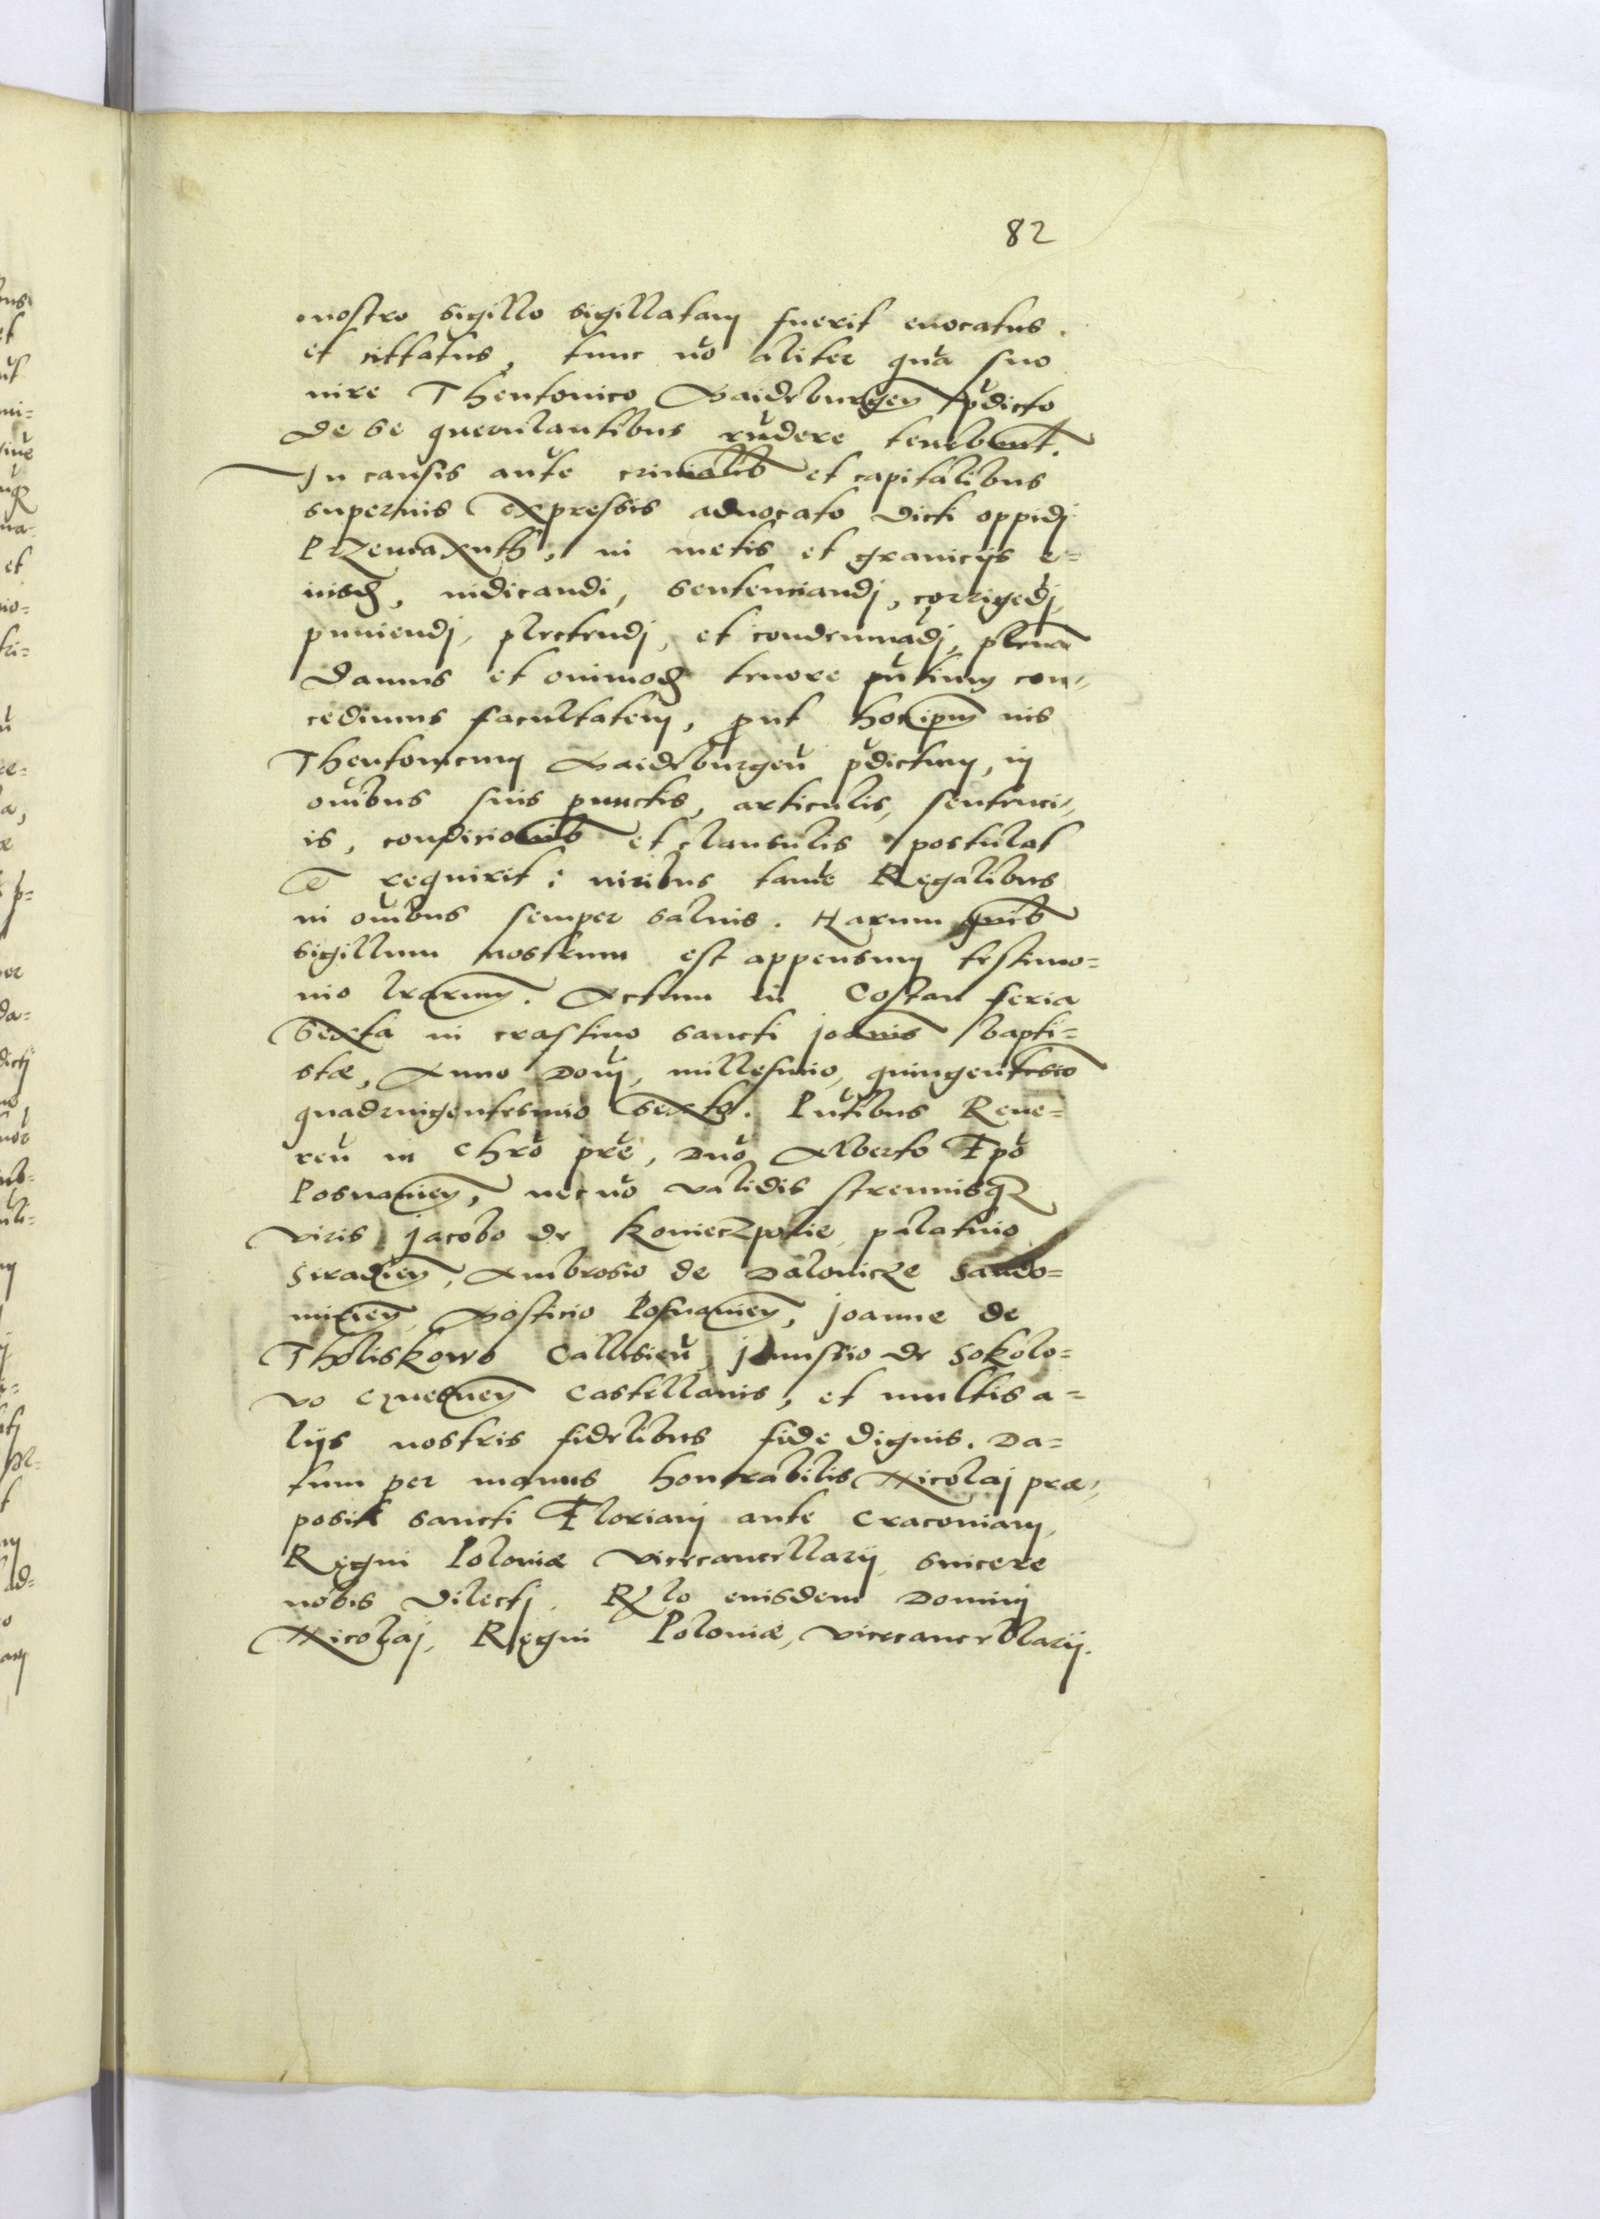 82
nostro sigillo sigillatam fuerit euocatus.
et cittatus, tunc nō aliter quā suo
iure Theutonico Maideburgeñ p̄dicto
de se querulantibus rñdere tenebunt.
In causis aute criminalib et capitalibus
superius expressis aduocato dicti oppidj
, in metis et granicijs e=
iusdē, iudicandi, sentenciandj, corrigēdj,
puniendj, plectendj, et condemnādj, plenā
damus et omimodā tenore pñtium con=
cedimus facultatem, prout hoc ipm ius
Theutonicum Maideburgeñ p̄dictum, in
omibus suis punctis, articulis, sentenci=
is, condicionib et clausulis postulat
et requirit: iuribus tamē Regalibus
in omibus semper saluis. Harum quib
sigillum nostrum est appensum testimo=
nio lrarum. Actum in Costan feria
sexta in crastino sancti joanis bapti=
stæ, Anno Domj, millesimo, quingentesīo
quadringentesimo sexto. Pñtibus Reue=
reñ in Chrō pre, Dño Alberto Epō
Posnanieñ, nec nō validis strenuisqȝ
viris jacobo de Konieczpolie palatino
Siradieñ, Ambrosio de Dalonicze Sando=
mirieñ, Posnanieñ, joanne de
Tholiskowo Callisieñ, de Sokolo=
vo Gneȝneñ Castellanis, et multis a=
lijs nostris fidelibus fide dignis. Da=
tum per manus honorabilis Nicolaj præ=
positi sancti Floriani ante Cracouiam,
Regni Poloniæ vicecancellarij sincere
nobis dilectj. Rlo eiusdem Dominj
Nicolaj, Regni Poloniæ, vicecancellarij.